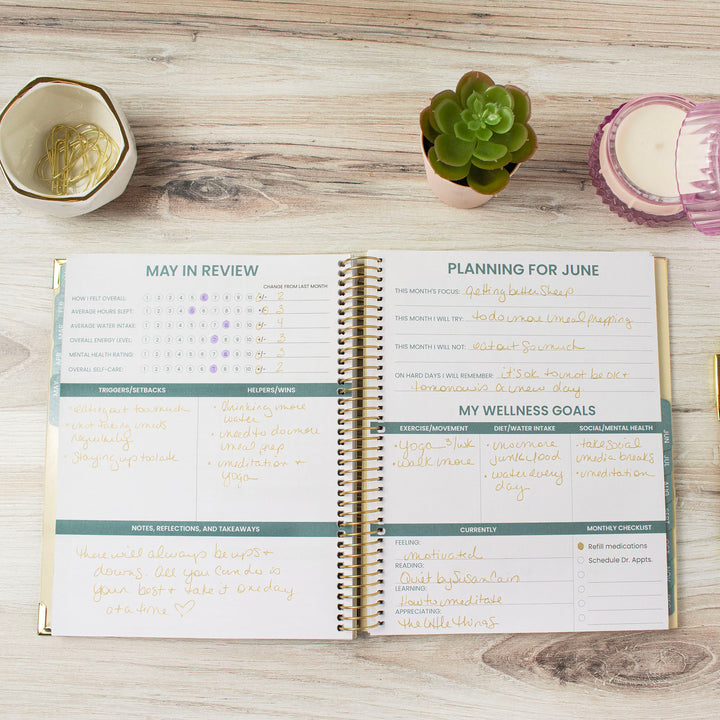 MAY IN REVIEW
CHANGE FROM LAST MONTH
HOW I FELT OVERALL: 1 2 3 4 5 6 7 8 9 10 +/- 2
AVERAGE HOURS SLEPT: 1 2 3 4 5 6 7 8 9 10 +/- 3
AVERAGE WATER INTAKE: 1 2 3 4 5 6 7 8 9 10 +/- 4
OVERALL ENERGY LEVEL: 1 2 3 4 5 6 7 8 9 10 +/- 3
MENTAL HEALTH RATING: 1 2 3 4 5 6 7 8 9 10 +/- 3
OVERALL SELF-CARE: 1 2 3 4 5 6 7 8 9 10 +/- 2
TRIGGERS/SETBACKS
• eating out too much
• not taking meds
regularly
• Staying up too late
HELPERS/WINS
• Drinking more
water
• need to do more
meal prep
• meditation +
yoga
NOTES, REFLECTIONS, AND TAKEAWAYS
There will always be ups +
downs. All you can do is
your best + take it one day
at a time ♡
PLANNING FOR JUNE
THIS MONTH'S FOCUS: getting better sleep
THIS MONTH I WILL TRY: to do more meal prepping
THIS MONTH I WILL NOT: eat out so much
ON HARD DAYS I WILL REMEMBER: it's ok to not be ok +
tomorrow is a new day
MY WELLNESS GOALS
EXERCISE/MOVEMENT
• Yoga 3/wk
• walk more
DIET/WATER INTAKE
• no more
junk food
• water every
day
SOCIAL/MENTAL HEALTH
• take social
media breaks
• meditation
CURRENTLY
FEELING:
motivated
READING:
Quiet by Susan Cain
LEARNING:
How to meditate
APPRECIATING:
the little things
MONTHLY CHECKLIST
Refill medications
Schedule Dr. Appts.
FEB
MAR
APR
JUN
JUL
AUG